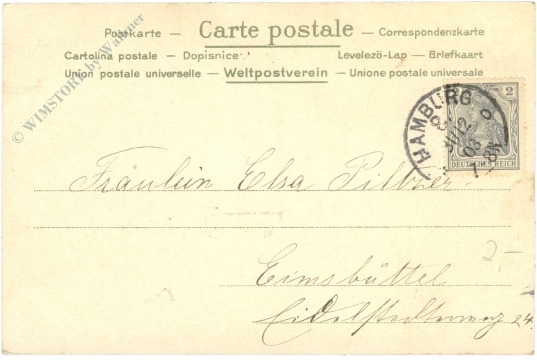 Postkarte — Carte postale — Correspondenzkarte
Cartolina postale — Dopisnice Levelező-Lap — Briefkaart
Union postale universelle — Weltpostverein — Unione postale universale
© WIMSTORE by Waldner
2
DEUTSCHES REICH
HAMBURG
03
Fräulein Elsa
2,-
Eimsbüttel
Eidelstedterweg 24.